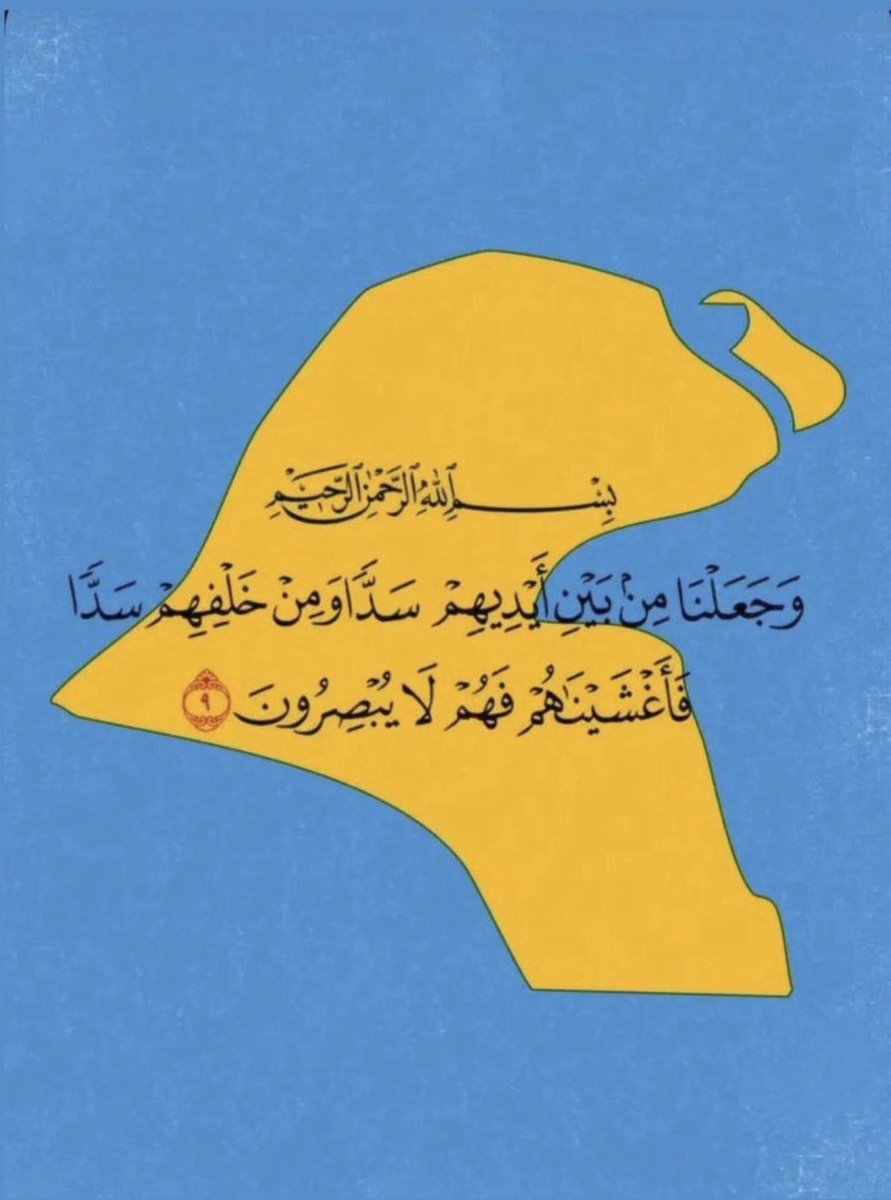 بِسْمِ ٱللَّهِ ٱلرَّحْمَٰنِ ٱلرَّحِيمِ
وَجَعَلْنَا مِنْ بَيْنِ أَيْدِيهِمْ سَدًّا وَمِنْ خَلْفِهِمْ سَدًّا
فَأَغْشَيْنَاهُمْ فَهُمْ لَا يُبْصِرُونَ ٩